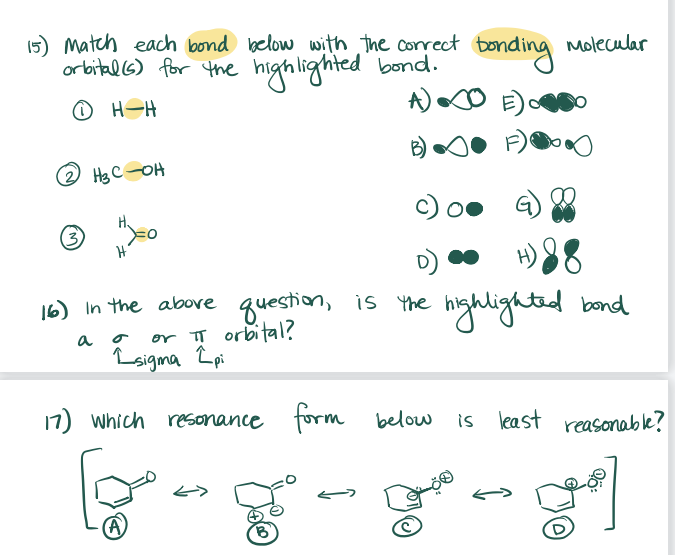 15) Match each bond below with the correct bonding molecular
orbital(s) for the highlighted bond.
① H—H
A) E)
B) F)
② H₃C—OH
C) G)
③ H =O
H
D) H)
16) In the above question, is the highlighted bond
a σ or π orbital?
sigma pi
17) Which resonance form below is least reasonable?
O O O⊕ O⊖
⊕ ⊖ ⊖ ⊕
A B C D